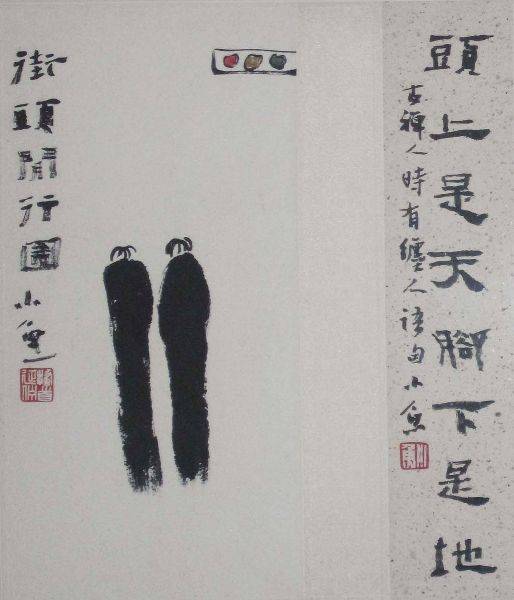 頭上是天腳下是地
古禪人時有纏人語句 小魚
街頭閒行圖 小魚